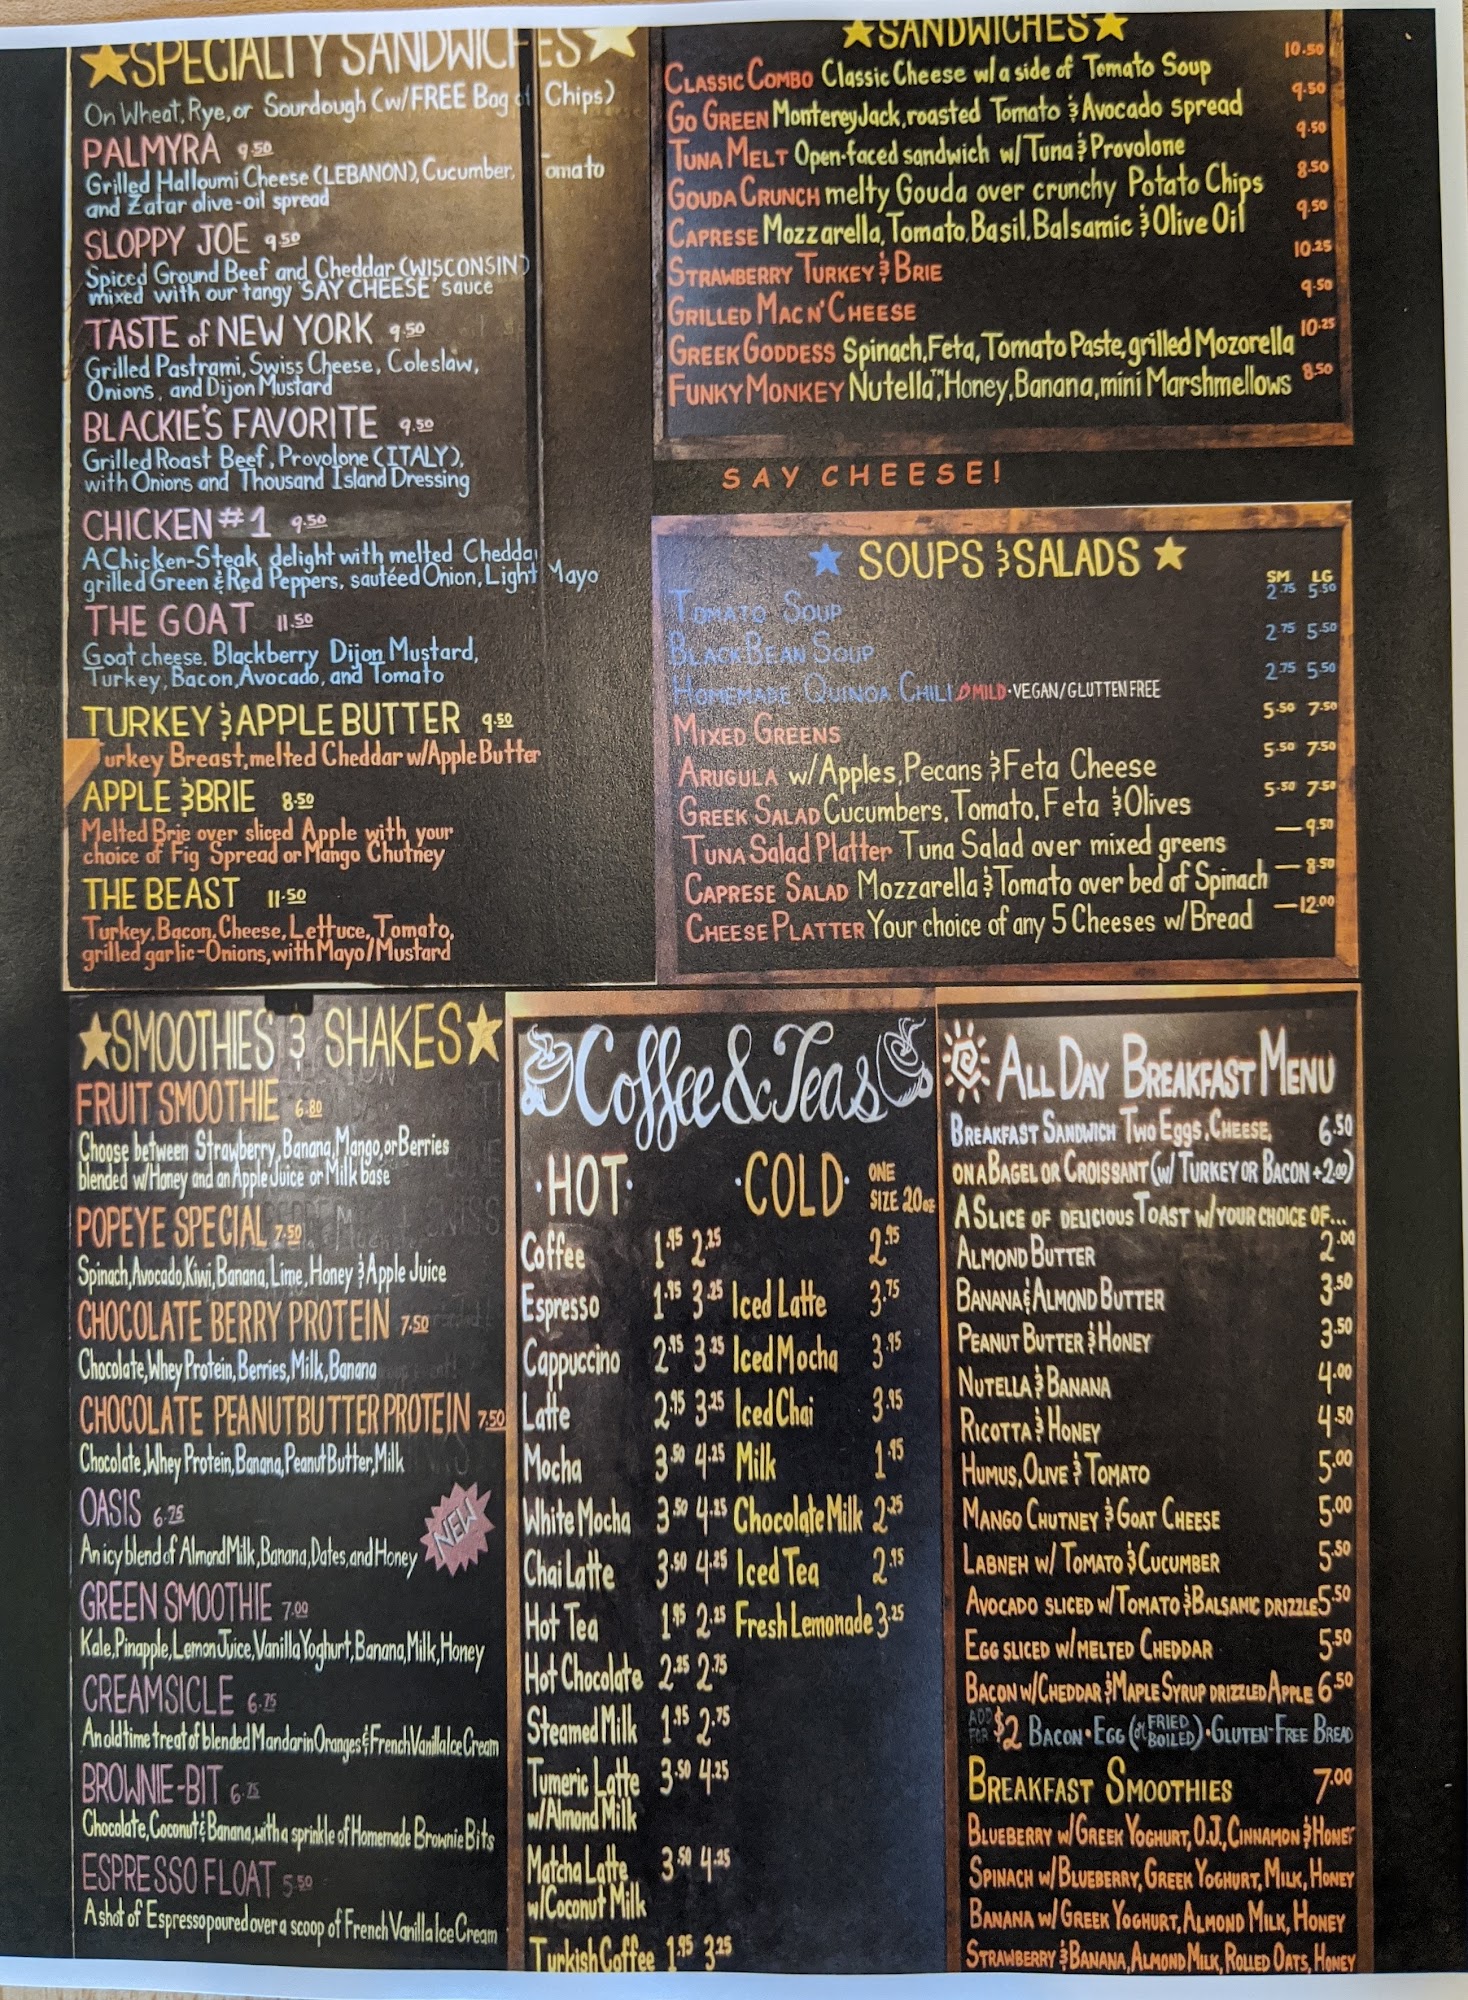 ★SPECIALTY SANDWICHES★
On Wheat, Rye, or Sourdough (w/FREE Bag of Chips)
PALMYRA 9.50
Grilled Halloumi Cheese (LEBANON), Cucumber, Tomato
and Zatar olive-oil spread
SLOPPY JOE 9.50
Spiced Ground Beef and Cheddar (WISCONSIN)
mixed with our tangy 'SAY CHEESE' sauce
TASTE of NEW YORK 9.50
Grilled Pastrami, Swiss Cheese, Coleslaw,
Onions, and Dijon Mustard
BLACKIE'S FAVORITE 9.50
Grilled Roast Beef, Provolone (ITALY),
with Onions and Thousand Island Dressing
CHICKEN #1 9.50
A Chicken-Steak delight with melted Chedda
grilled Green & Red Peppers, sautéed Onion, Light Mayo
THE GOAT 11.50
Goat cheese, Blackberry Dijon Mustard,
Turkey, Bacon, Avocado, and Tomato
TURKEY & APPLE BUTTER 9.50
urkey Breast, melted Cheddar w/Apple Butter
APPLE & BRIE 8.50
Melted Brie over sliced Apple with your
choice of Fig Spread or Mango Chutney
THE BEAST 11.50
Turkey, Bacon, Cheese, Lettuce, Tomato,
grilled garlic-Onions, with Mayo/Mustard
★SANDWICHES★
CLASSIC COMBO Classic Cheese w/ a side of Tomato Soup 10.50
GO GREEN Monterey Jack, roasted Tomato & Avocado spread 9.50
TUNA MELT Open-faced sandwich w/ Tuna & Provolone 9.50
GOUDA CRUNCH melty Gouda over crunchy Potato Chips 8.50
CAPRESE Mozzarella, Tomato, Basil, Balsamic & Olive Oil 9.50
STRAWBERRY TURKEY & BRIE 10.25
GRILLED MAC N' CHEESE 9.50
GREEK GODDESS Spinach, Feta, Tomato Paste, grilled Mozorella 10.25
FUNKY MONKEY Nutella™, Honey, Banana, mini Marshmellows 8.50
SAY CHEESE!
★ SOUPS & SALADS ★
SM LG
TOMATO SOUP 2.75 5.50
BLACK BEAN SOUP 2.75 5.50
HOMEMADE QUINOA CHILI MILD · VEGAN/GLUTTEN FREE 2.75 5.50
MIXED GREENS 5.50 7.50
ARUGULA w/Apples, Pecans & Feta Cheese 5.50 7.50
GREEK SALAD Cucumbers, Tomato, Feta & Olives 5.50 7.50
TUNA SALAD PLATTER Tuna Salad over mixed greens — 9.50
CAPRESE SALAD Mozzarella & Tomato over bed of Spinach — 8.50
CHEESE PLATTER Your choice of any 5 Cheeses w/Bread — 12.00
★SMOOTHIES & SHAKES★
FRUIT SMOOTHIE 6.80
Choose between Strawberry, Banana, Mango, or Berries
blended w/Honey and an Apple Juice or Milk base
POPEYE SPECIAL 7.50
Spinach, Avocado, Kiwi, Banana, Lime, Honey & Apple Juice
CHOCOLATE BERRY PROTEIN 7.50
Chocolate, Whey Protein, Berries, Milk, Banana
CHOCOLATE PEANUTBUTTER PROTEIN 7.50
Chocolate, Whey Protein, Banana, Peanut Butter, Milk
OASIS 6.75
NEW
An icy blend of Almond Milk, Banana, Dates, and Honey
GREEN SMOOTHIE 7.00
Kale, Pinapple, Lemon Juice, Vanilla Yoghurt, Banana, Milk, Honey
CREAMSICLE 6.75
An old time treat of blended Mandarin Oranges & French Vanilla Ice Cream
BROWNIE-BIT 6.75
Chocolate, Coconut & Banana, with a sprinkle of Homemade Brownie Bits
ESPRESSO FLOAT 5.50
A shot of Espresso poured over a scoop of French Vanilla Ice Cream
Coffee & Teas
·HOT· ·COLD· ONE SIZE 20oz
Coffee 1.95 2.25 2.95
Espresso 1.95 3.25 Iced Latte 3.75
Cappuccino 2.95 3.25 Iced Mocha 3.95
Latte 2.95 3.25 Iced Chai 3.95
Mocha 3.50 4.25 Milk 1.95
White Mocha 3.50 4.25 Chocolate Milk 2.25
Chai Latte 3.50 4.25 Iced Tea 2.95
Hot Tea 1.95 2.25 Fresh Lemonade 3.25
Hot Chocolate 2.25 2.75
Steamed Milk 1.95 2.75
Tumeric Latte 3.50 4.25
w/Almond Milk
Matcha Latte 3.50 4.25
w/Coconut Milk
Turkish Coffee 1.95 3.25
ALL DAY BREAKFAST MENU
BREAKFAST SANDWICH TWO EGGS, CHEESE, 6.50
ON A BAGEL OR CROISSANT (W/ TURKEY OR BACON +2.00)
A SLICE OF DELICIOUS TOAST W/YOUR CHOICE OF...
ALMOND BUTTER 2.00
BANANA & ALMOND BUTTER 3.50
PEANUT BUTTER & HONEY 3.50
NUTELLA & BANANA 4.00
RICOTTA & HONEY 4.50
HUMUS, OLIVE & TOMATO 5.00
MANGO CHUTNEY & GOAT CHEESE 5.00
LABNEH W/ TOMATO & CUCUMBER 5.50
AVOCADO SLICED W/TOMATO & BALSAMIC DRIZZLE 5.50
EGG SLICED W/MELTED CHEDDAR 5.50
BACON W/CHEDDAR & MAPLE SYRUP DRIZZLED APPLE 6.50
ADD FOR $2 BACON · EGG (FRIED or BOILED) · GLUTEN-FREE BREAD
BREAKFAST SMOOTHIES 7.00
BLUEBERRY W/GREEK YOGHURT, O.J., CINNAMON & HONEY
SPINACH W/BLUEBERRY, GREEK YOGHURT, MILK, HONEY
BANANA W/GREEK YOGHURT, ALMOND MILK, HONEY
STRAWBERRY & BANANA, ALMOND MILK, ROLLED OATS, HONEY